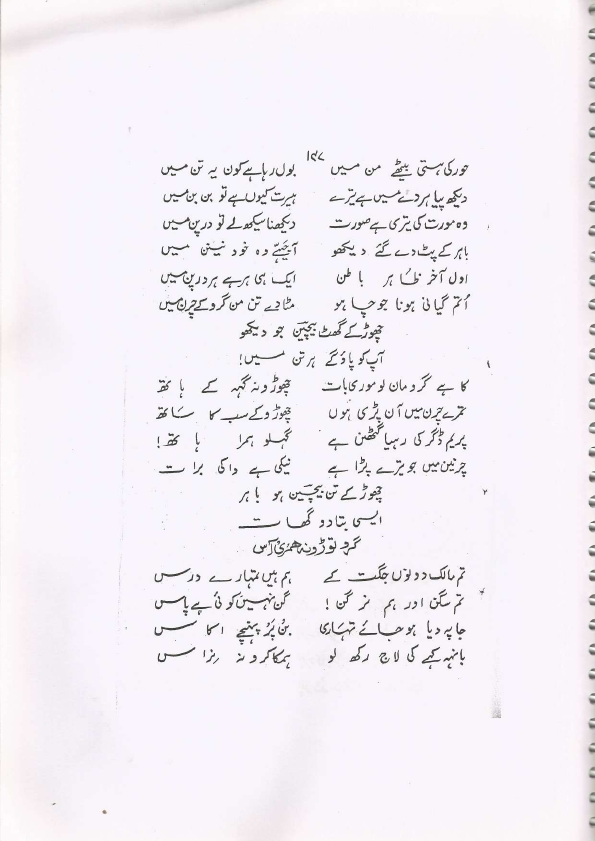 ۱۴۷
حور کی ہستی بیٹھے من میں بول رہا ہے کون یہ تن میں
دیکھ پیا ہردے میں ہے تیرے حیرت کیوں ہے تو بن بن میں
وہ مورت کی تیری ہے صورت دیکھنا سیکھ لے تو درپن میں
باہر کے پٹ دے گئے دیکھو وہ خود نینن میں
اول آخر ظاہر باطن ایک ہی ہر ہے ہر درپن میں
اُتم گیانی ہونا جو چاہو مٹا دے تن من گرو کے چرن میں
چھوڑ کے گھٹ بیچین جو دیکھو
آپ کو پاؤ گے ہر تن میں!
۱
کا ہے گرو مان لو موری بات چھوڑو نہ گہہ کے ہاتھ
تمرے چرن میں آن پڑی ہوں چھوڑو کے سب کا ساتھ
پریم ڈگر کی رہیا کٹھن ہے گہلو ہمرا ہاتھ!
چرنین میں جو تیرے پڑا ہے نیکی ہے واکی برات
۲
چھوڑ کے تن بیچین ہو باہر
ایسی بتا دو گھات
گرو توڑو نہ ہمری آس
تم مالک دونوں جگت کے ہم ہیں تمہارے درس
تم سگن اور ہم نرگن! گن نہیں کوئی ہے پاس
جا پہ دیا ہو جائے تمہاری بن پَر پہنچے اکاس
بانہہ گہے کی لاج رکھ لو ہمکا کرو نہ نراس